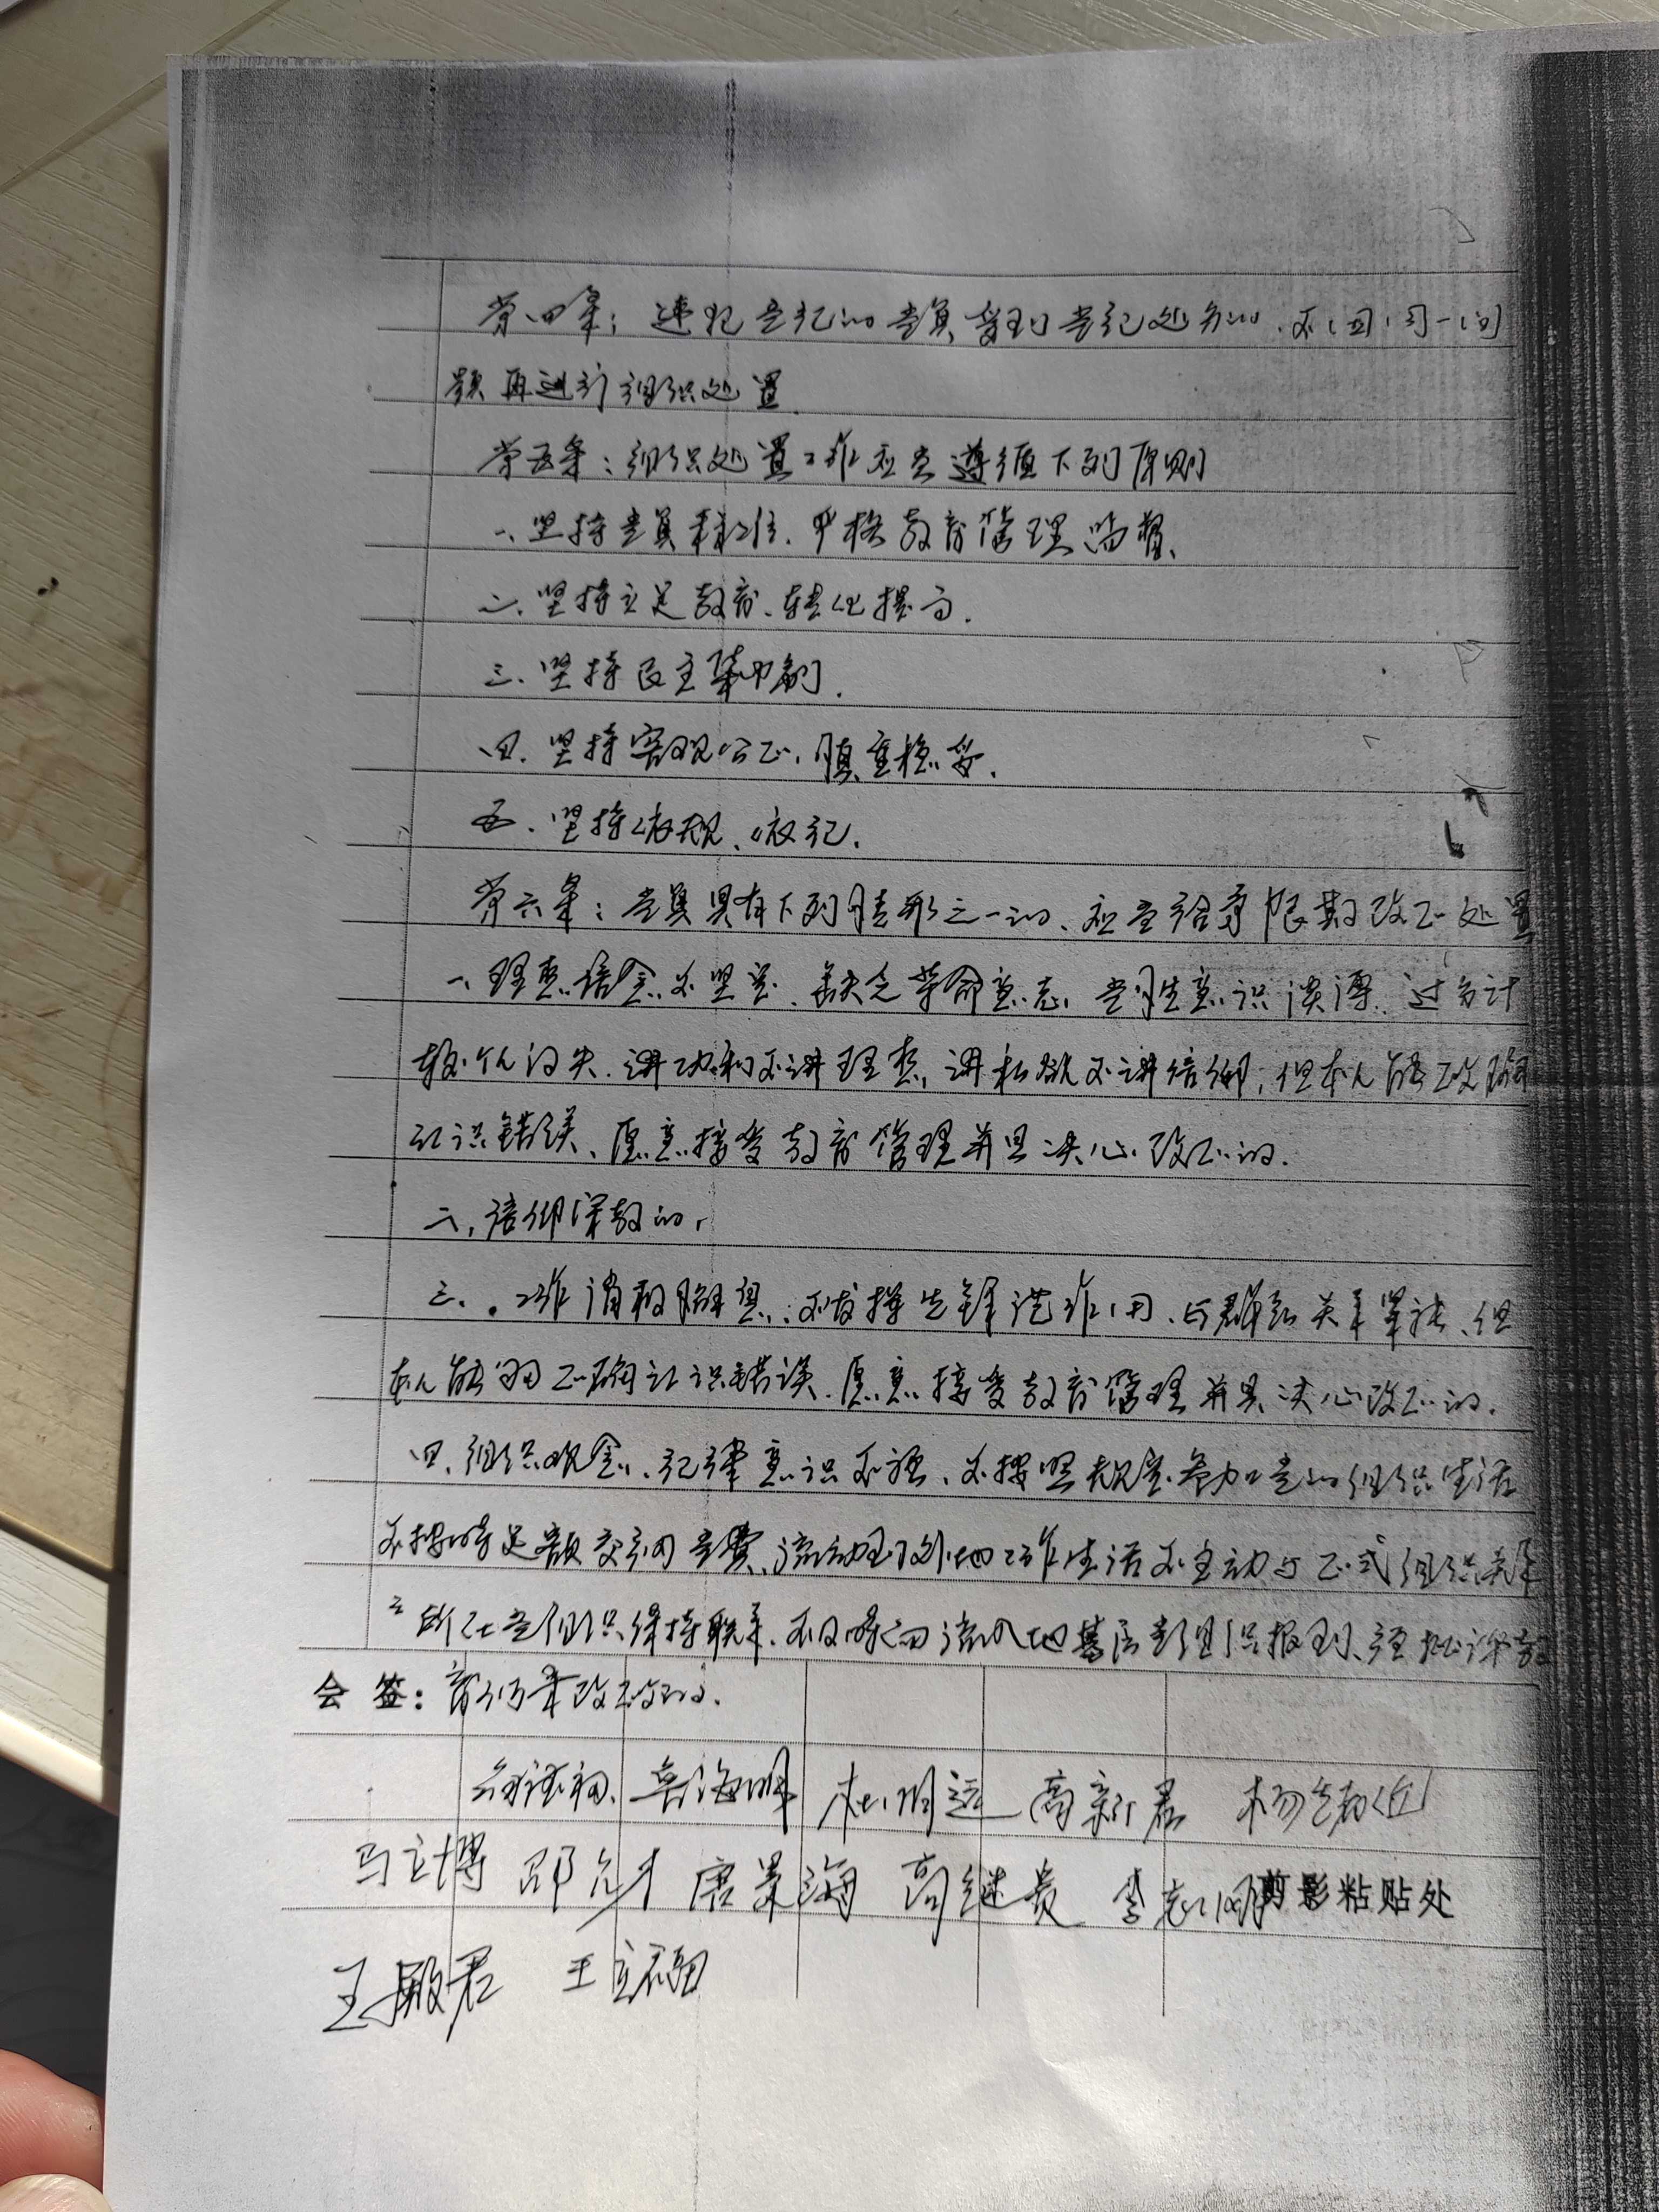 第四条：违犯党纪的党员受到党纪处分的、不因同一问
题再进行组织处置
第五条：组织处置工作应当遵循下列原则
一、坚持党员标准、严格教育管理监督、
二、坚持立足教育、转化提高.
三、坚持民主集中制.
四、坚持客观公正、慎重稳妥.
五、坚持依规、依纪.
第六条：党员具有下列情形之一的、应当给予限期改正处置
一、理想信念不坚定、缺乏革命意志、党性意识淡薄、过分计
较个人得失、讲功利不讲理想、讲私欲不讲信仰；但本人能正确
认识错误、愿意接受教育管理并且决心改正的.
二、信仰宗教的、
三、工作消极懈怠、不发挥先锋模范作用、与群众关系紧张、但
本人能够正确认识错误、愿意接受教育管理并且决心改正的.
四、组织观念、纪律意识不强、不按照规定参加党的组织生活
不按时足额交纳党费、流动到外地工作生活不主动与正式组织关系
所在党组织保持联系、不及时向流入地基层党组织报到、经批评教
会 签：育仍未改正的.
海明 杜明远 高新君 杨
马立博 邵 唐景海 高继贵 李志刚 剪影粘贴处
王殿君 王立福